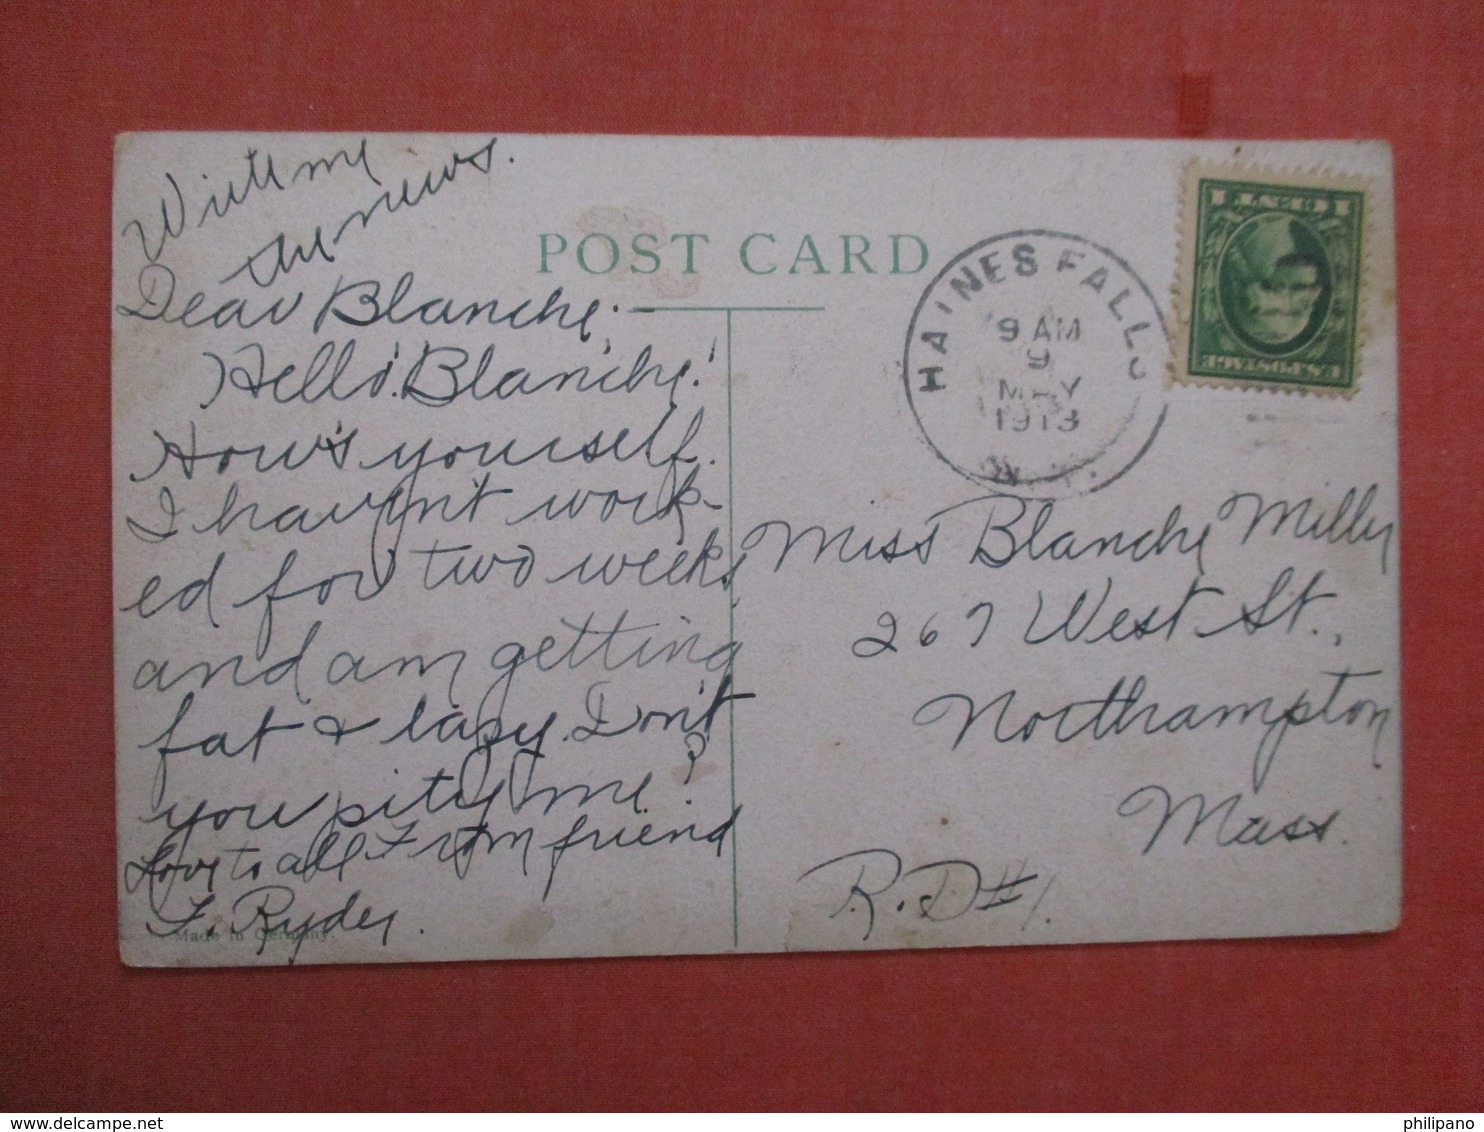 Write me
the news.
POST CARD
Dear Blanche:—
Hello! Blanche!
How's yourself.
I havn't work-
ed for two weeks,
and am getting
fat & lazy. Don't
you pity me?
Love to all From friend
F. Ryder.
Made in Germany.
HAINES FALLS
9 AM
9
MAY
1913
N.Y.
U.S. POSTAGE
1 CENT 1
Miss Blanche
267 West St.,
Northampton
Mass.
R.D #1.
philipano
delcampe.net